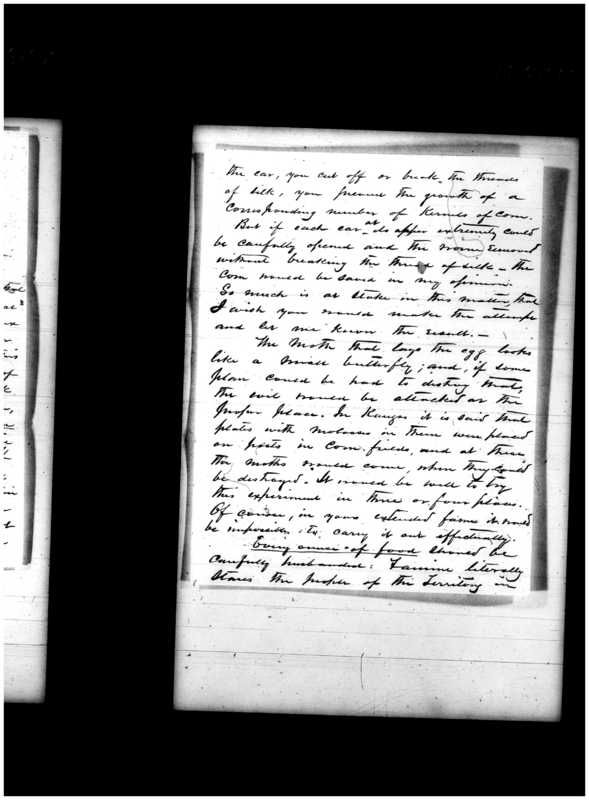 the ear, you cut off or break, the threads
of silk, you prevent the growth of a
corresponding number of Kernels of Corn.
But if each ear at its upper extremity could
be carefully opened and the worm removed
without breaking the thread of silk - the
corn would be saved in my opinion.
So much is at stake in this matter, that
I wish you would make the attempt
and let me know the result. -
The Moth that lays the egg looks
like a small butterfly; and, if some
plan could be had to destroy that,
the evil would be attacked at the
proper place. In Kansas it is said that
plates with molasses in them were placed
on posts in corn fields, and at these
the moths would come, when they could
be destroyed. It would be well to try
this experiment in three or four places.
Of course, in your extended farm it would
be impossible to carry it out effectually.
Every ounce of food should be
carefully husbanded: Famine literally
stares the people of the Territory in